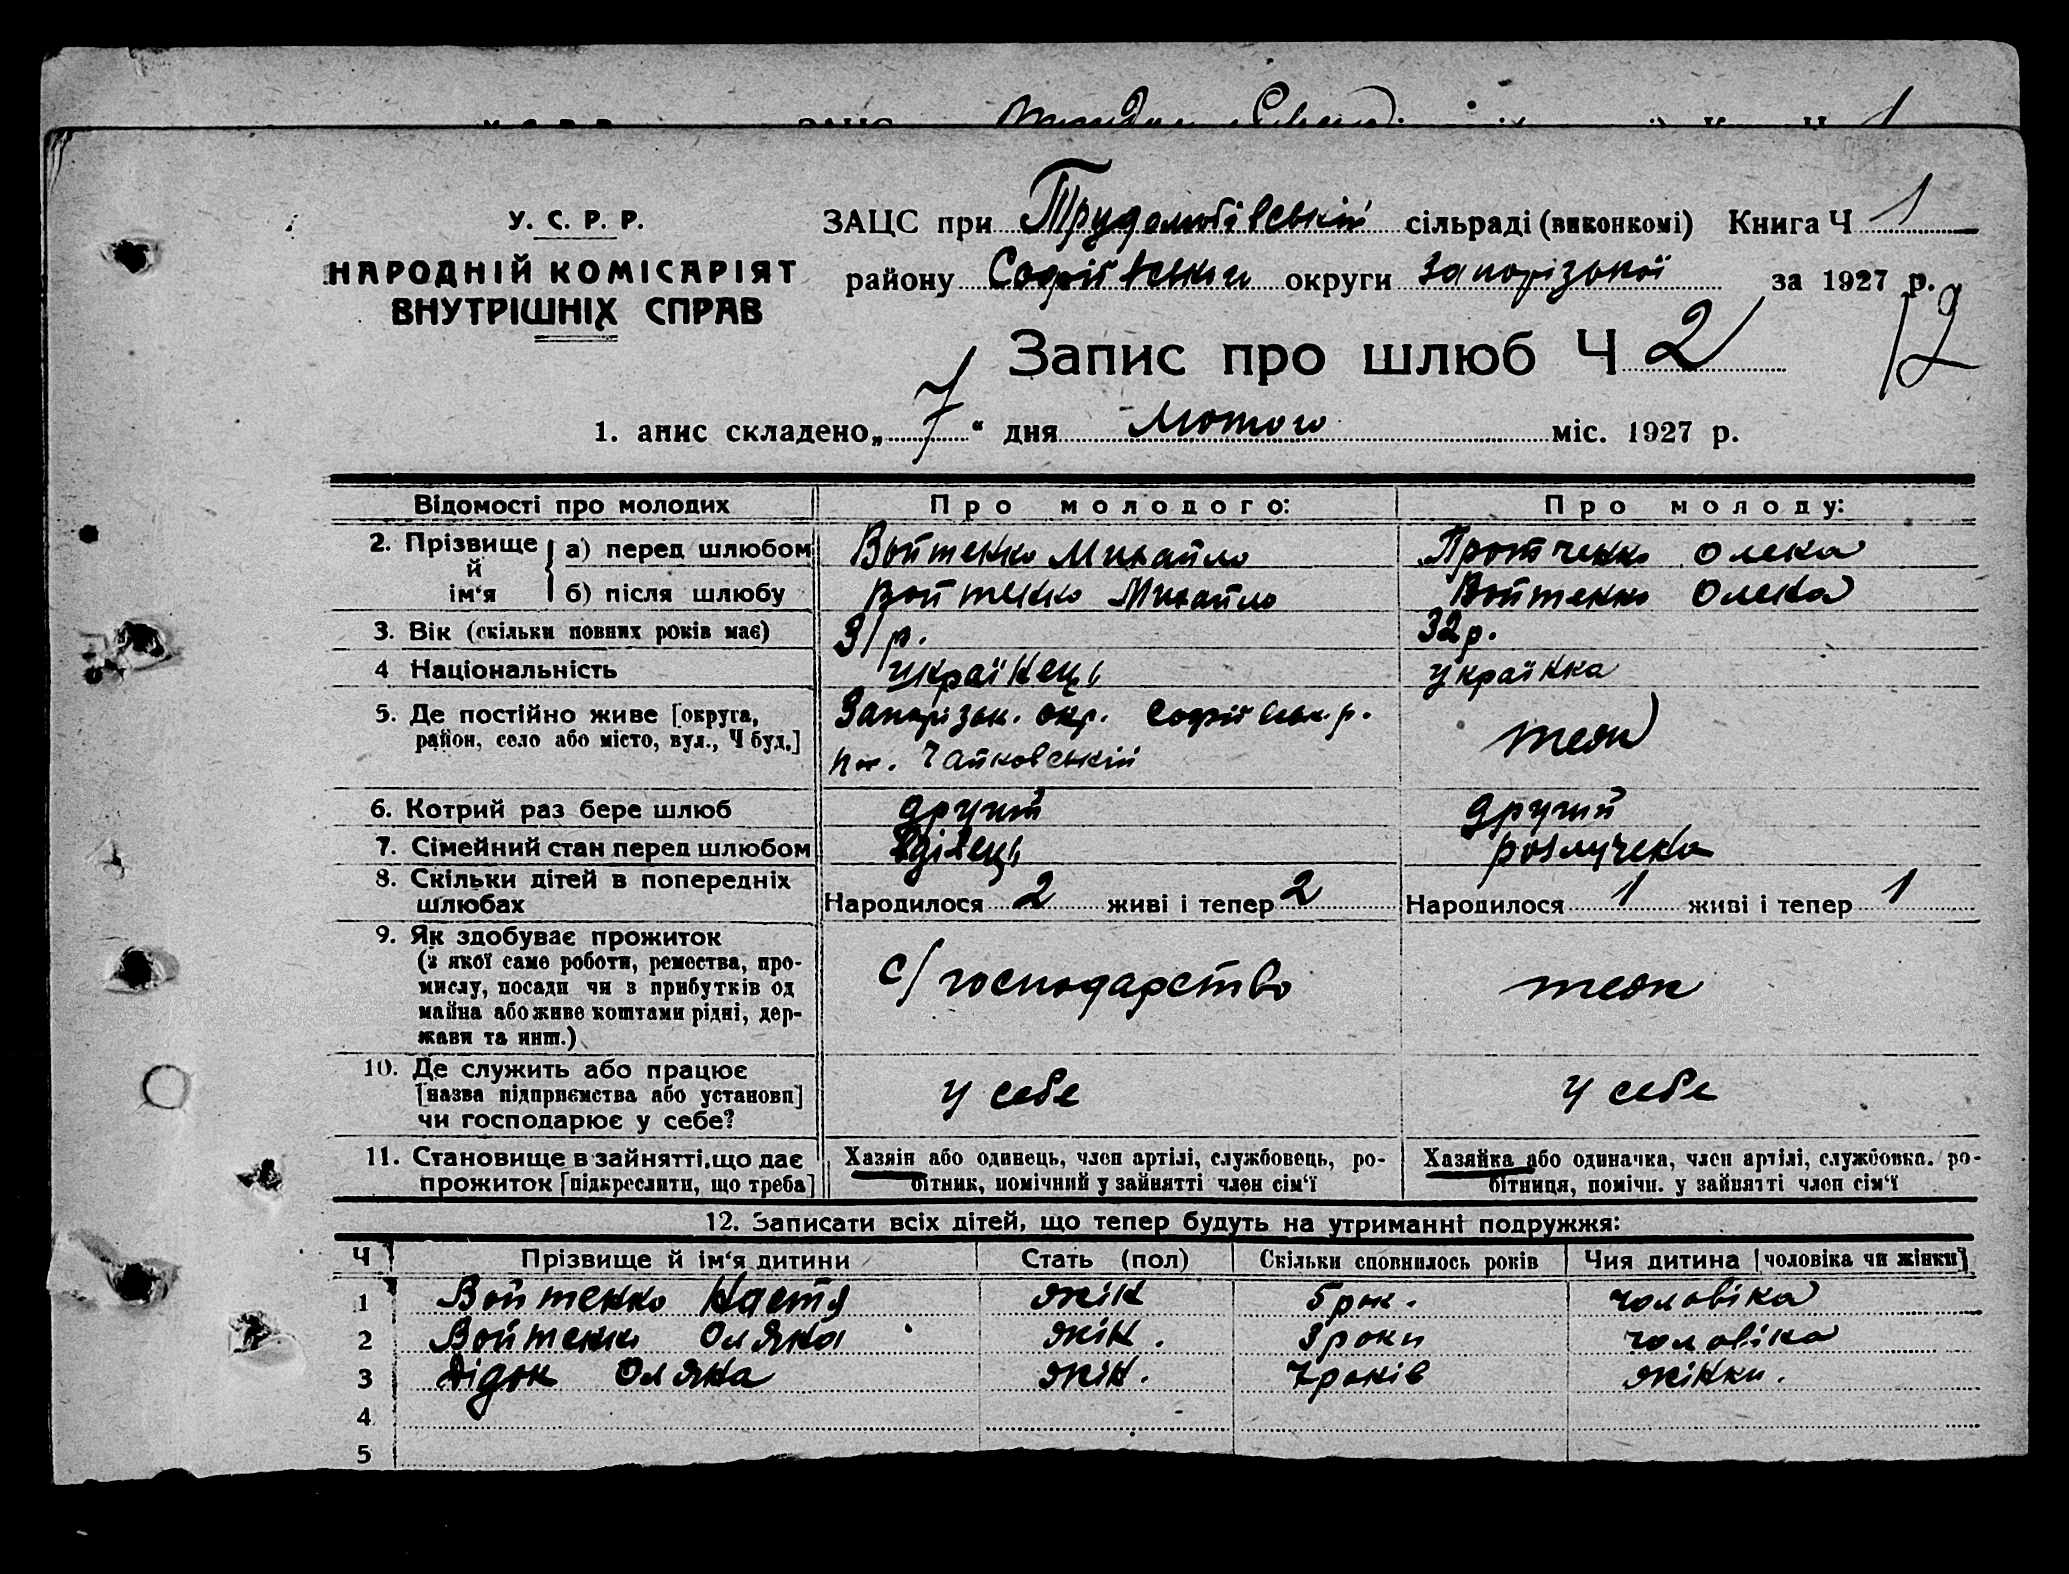 У. С. Р. Р.
НАРОДНІЙ КОМІСАРІЯТ
ВНУТРІШНІХ СПРАВ
ЗАЦС при Трудолюбівській сільраді (виконкомі) Книга Ч 1
району Софіївського округи Запорізької за 1927 р.
Запис про шлюб Ч 2
12
1. апис складено „7“ дня лютого міс. 1927 р.
Відомості про молодих Про молодого: Про молоду:
2. Прізвище й ім‘я а) перед шлюбом Войтенко Михайло Протченко Олена
б) після шлюбу Войтенко Михайло Войтенко Олена
3. Вік (скільки повних років має) 31 р. 32 р.
4 Національність українець українка
5. Де постійно живе [округа, Запорізьк. окр. Софіївськ. р.
район, село або місто, вул., Ч буд.] Чайковській теж
6. Котрий раз бере шлюб другий другий
7. Сімейний стан перед шлюбом вдівець розлучена
8. Скільки дітей в попередніх
шлюбах Народилося 2 живі і тепер 2 Народилося 1 живі і тепер 1
9. Як здобуває прожиток
(з якої саме роботи, ремества, про-
мислу, посади чи з прибутків од
майна або живе коштами рідні, дер-
жави та инш.) с/господарство теж
10. Де служить або працює
[назва підприємства або установи]
чи господарює у себе? у себе у себе
11. Становище в зайнятті, що дає Хазяїн або одинець, член артілі, службовець, ро- Хазяйка або одиначка, член артілі, службовка, ро-
прожиток [підкреслити, що треба] бітник, помічний у зайнятті член сім‘ї бітниця, помічн. у зайнятті член сім‘ї
12. Записати всіх дітей, що тепер будуть на утриманні подружжя:
Ч Прізвище й ім‘я дитини Стать (пол) Скільки сповнилось років Чия дитина [чоловіка чи жінки]
1 Войтенко Настя жін 5 рок. чоловіка
2 Войтенко Оляна жін. 3 роки чоловіка
3 Дідок Оляна жін. 7 років жінки.
4
5